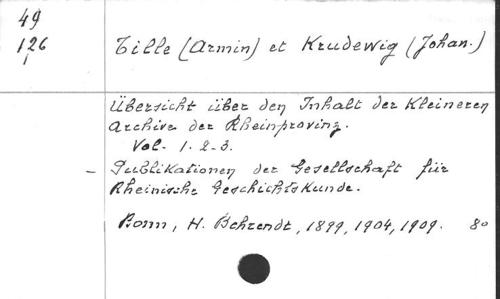 49
126
1
Tille (Armin) et Krudewig (Johan.)
Übersicht über den Inhalt der Kleineren
Archive der Rheinprovinz.
Vol. 1. 2. 3.
– Publikationen der Gesellschaft für
Rheinische Geschichtskunde.
Bonn, H. Behrendt, 1899, 1904, 1909. 8o